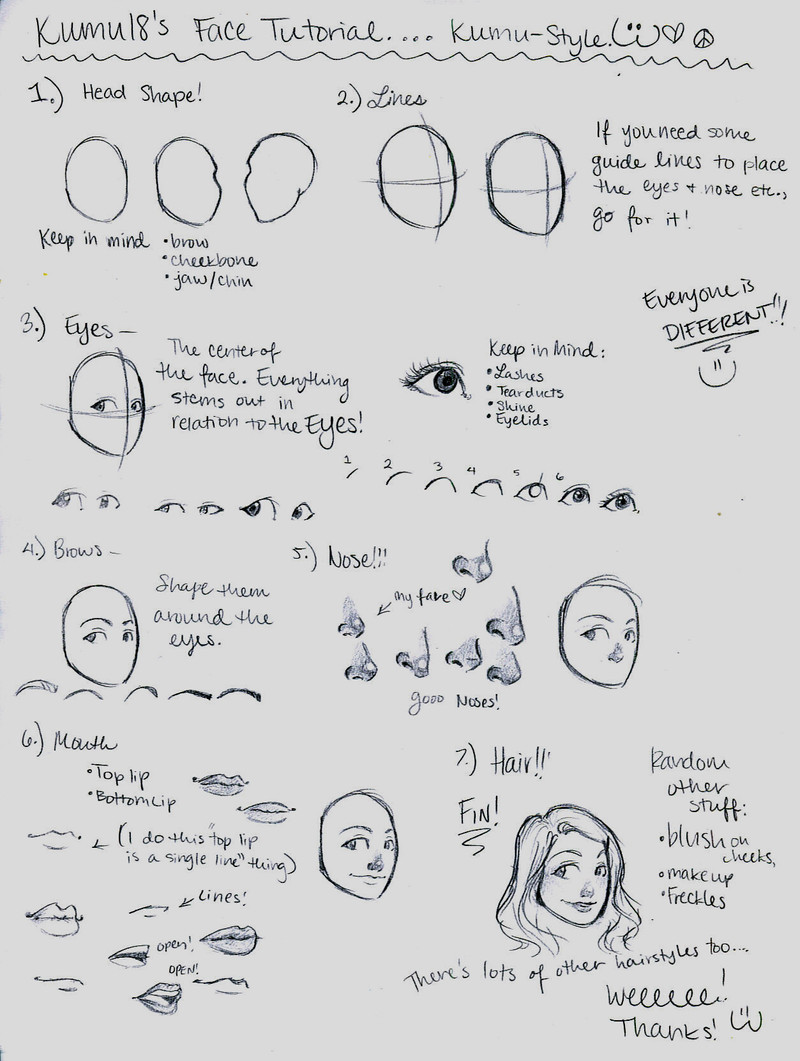 Kumu18's Face Tutorial.... Kumu-Style.
1.) Head Shape!
Keep in mind • brow
• cheekbone
• jaw/chin
2.) Lines
If you need some
guide lines to place
the eyes + nose etc.,
go for it!
Everyone is
DIFFERENT!!!
3.) Eyes —
The center of
the face. Everything
stems out in
relation to the Eyes!
Keep in Mind:
• Lashes
• Tear ducts
• Shine
• Eyelids
1 2 3 4 5 6
4.) Brows —
Shape them
around the
eyes.
5.) Nose!!!
my fave ♡
good Noses!
6.) Mouth
• Top lip
• Bottom Lip
(I do this "top lip
is a single line" thing)
Lines!
open!
OPEN!
7.) Hair!!
FIN!
Random
other
stuff:
• blush on
cheeks,
• makeup
• Freckles
There's lots of other hairstyles too...
Weeeeee!
Thanks!